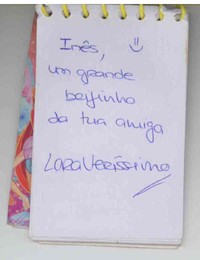 Inês,
um grande
beijinho
da tua amiga
Lara Veríssimo